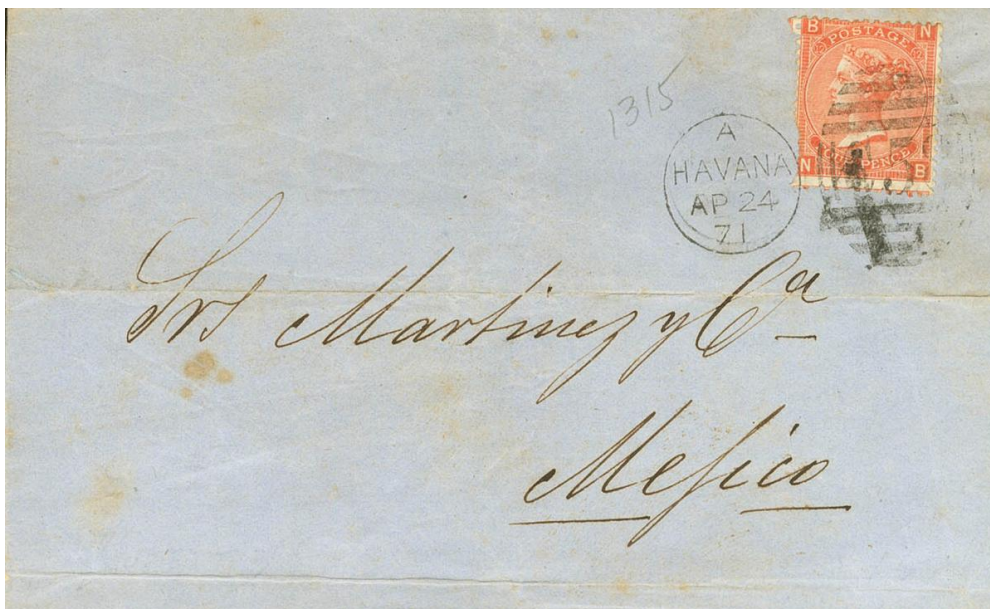 B N
POSTAGE
PENCE
N B
1315
A
HAVANA
AP 24
71
Srs Martinez y Ca
Mejico